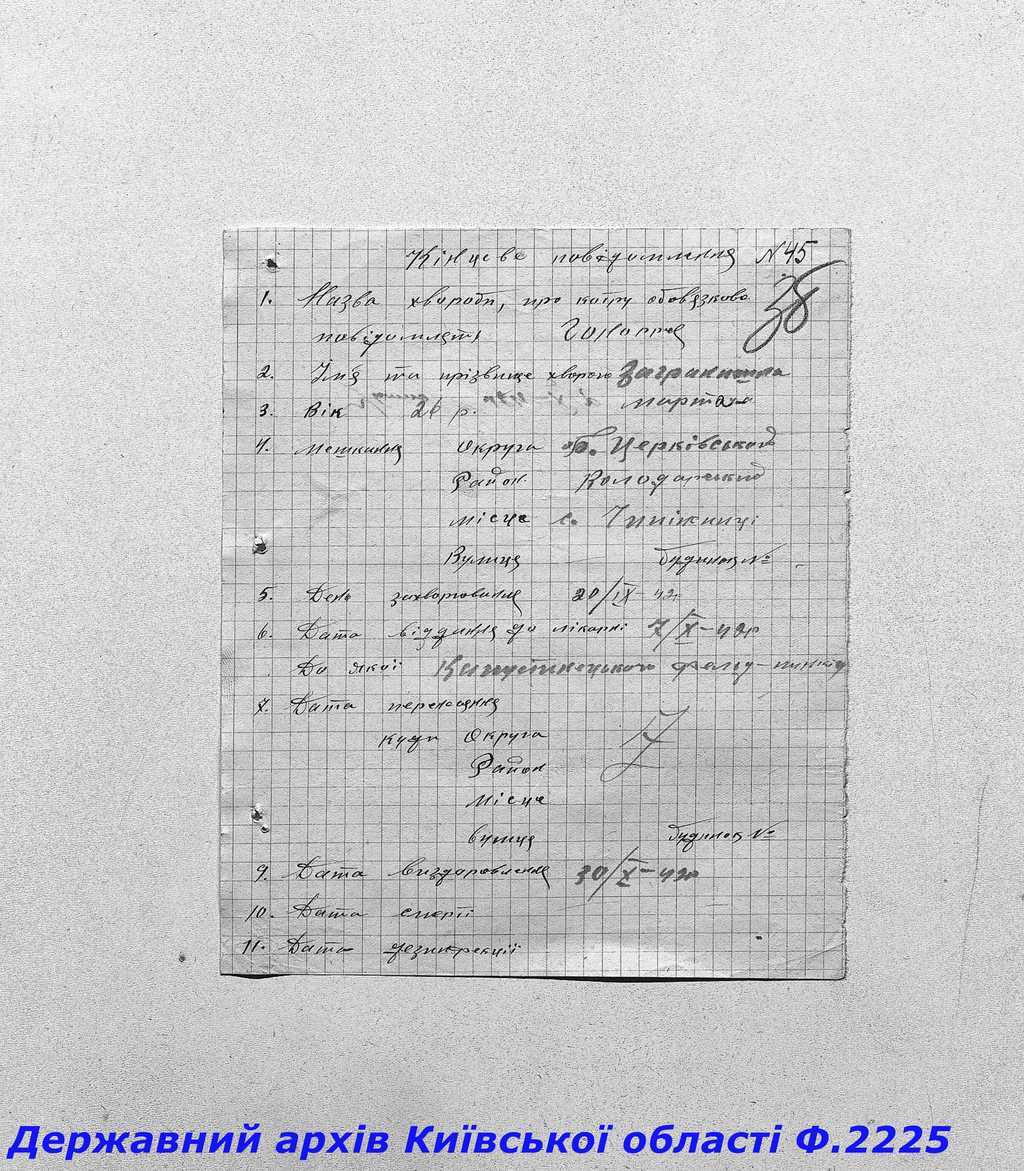 Кінцеве повідомлення N 45
38
1. Назва хвороби, про котру обов'язково
повідомляти Гонорея
2. Ім'я та прізвище хворого
3. Вік 26 р. Марта
4. Мешкання Округа Б. Церківського
Район Володарський
місце с.
Вулиця будинок №
5. День захворювання 20/IX-42р
6. Дата віддання до лікарні 7/X-42р
До якої
7. Дата переїздання
куди Округа
Район
Місце
вулиця будинок №
9. Дата виздоровлення 30/X-42р
10. Дата смерті
11. Дата дезинфекції
Державний архів Київської області Ф.2225